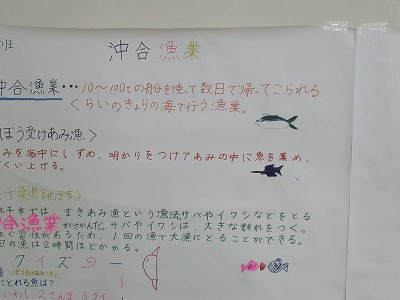 の班
沖合漁業
沖合漁業・・・10〜100tの船を使って数日で帰ってこられる
くらいのきょりの海で行う漁業。
ぼう受けあみ漁〉
みを海中にしずめ、明かりをつけてあみの中に魚を集め、
くい上げる。
千葉県銚子市〉
子市では、まきあみ漁という漁法サバやイワシなどをとる
沖合漁業がさかんだ。サバやイワシは、大きな群れをつく
泳ぐ習性があるため、1回の漁で大漁にとることができる。
回の漁は2時間ほどかかる。
クイズの一
にとれる魚は?
いわし 2さんま 3タイ